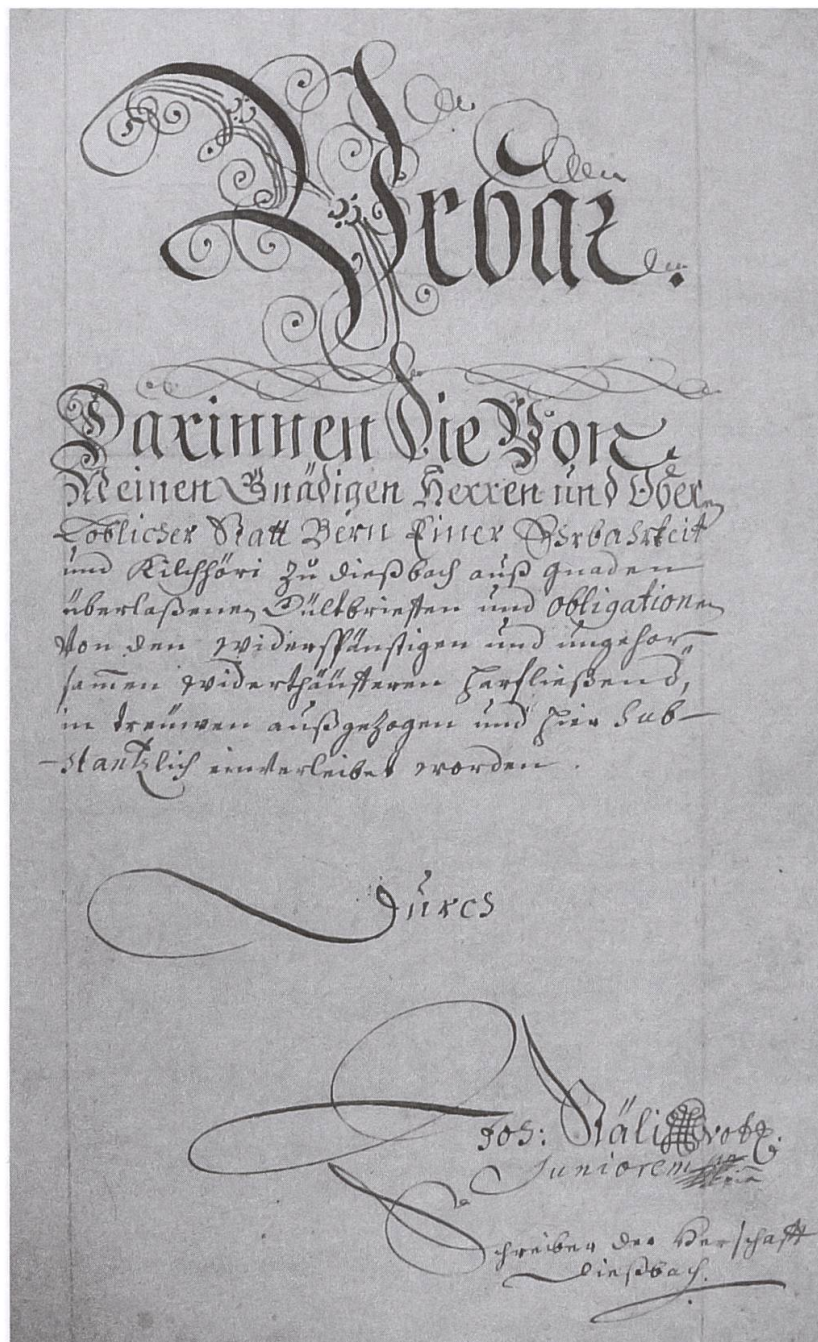 Urbar.
Darinnen die Von
Meinen Gnädigen Herren und Oberen
Loblicher Statt Bern Einer Ehrbahrkeit
und Kilchhöri zu Dießbach auß gnaden
überlaßenen Gültbrieffen und obligationen
Von den widerspänstigen und ungehor-
samen widerthäufferen harfließend,
in treüwen außgezogen und hier sub-
stantzlich einverleibet worden.
Durch
Joh:
Juniorem
Schreiber der Herschafft
Dießbach.